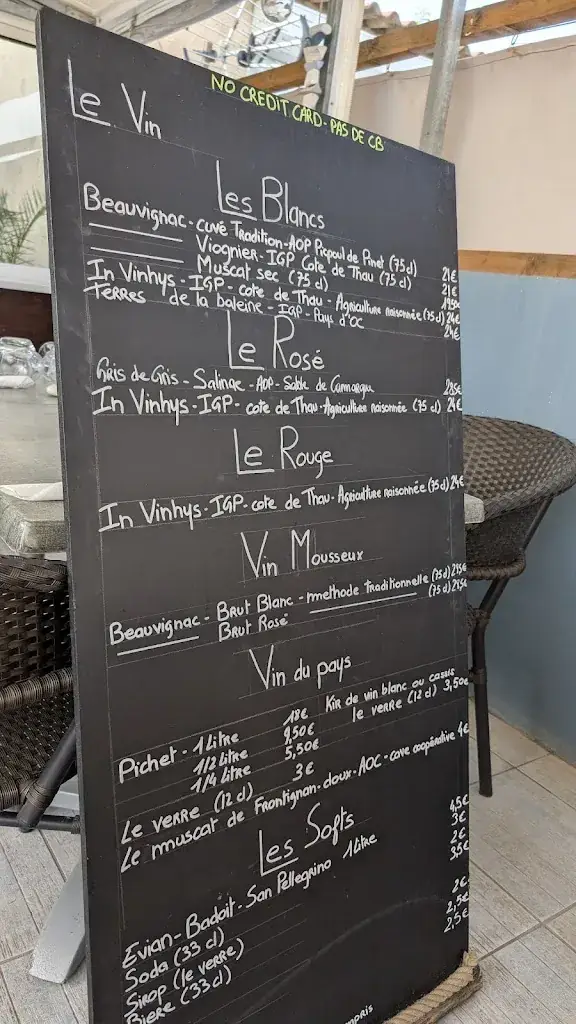 NO CREDIT CARD - PAS DE CB
Le Vin
Les Blancs
Beauvignac - cuvé Tradition - AOP Picpoul de Pinet (75cl) 21€
Viognier - IGP Cote de Thau (75cl) 21€
Muscat sec (75cl) 19,50€
In Vinhys - IGP - cote de Thau - Agriculture raisonnée (75cl) 24€
Terres de la baleine - IGP - Pays d'OC 24€
Le Rosé
Gris de Gris - Salinae - AOP - Sable de Camargue
In Vinhys - IGP - cote de Thau - Agriculture raisonnée (75 cl) 24€
Le Rouge
In Vinhys - IGP - cote de Thau - Agriculture raisonnée (75cl) 24€
Vin Mousseux
Beauvignac - Brut Blanc - méthode Traditionnelle (75cl)
Brut Rosé (75cl)
Vin du pays
Pichet - 1 Litre 18€
1/2 Litre 9,50€
1/4 Litre 5,50€
Kir de vin blanc ou cassis
le verre (12 cl) 3,50€
Le verre (12 cl) 3€
Le muscat de Frontignan - doux - AOC - cave coopérative 4€
Les Softs
Evian - Badoit - San Pellegrino 1 litre
Soda (33 cl)
Sirop (le verre)
Bière (33 cl)
4,5€
3€
2€
3,5€
2€
2,5€
2,5€